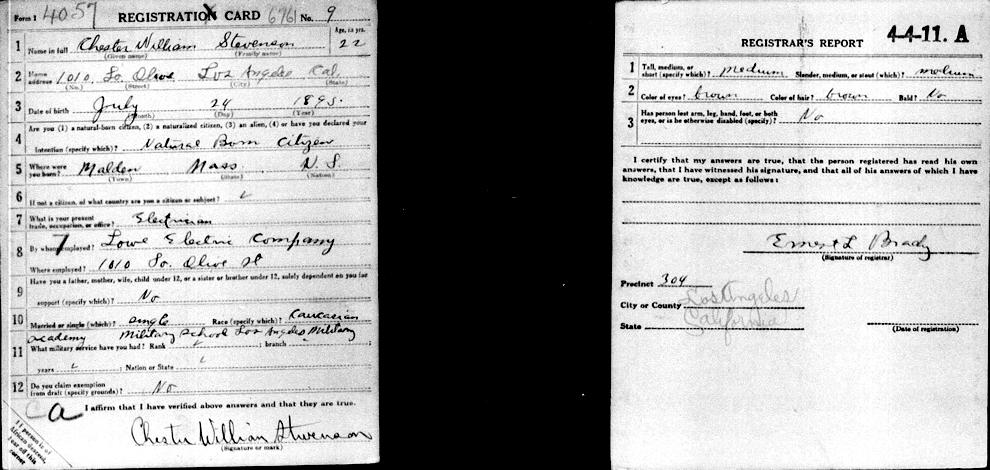 Form 1 4057 REGISTRATION CARD 6761 No. 9
1 Name in full Chester William Stevenson Age, in yrs. 22
(Given name) (Family name)
2 Home address 1010 So. Olive Los Angeles Cal.
(No.) (Street) (City) (State)
3 Date of birth July 24 1895.
(Month) (Day) (Year)
4 Are you (1) a natural-born citizen, (2) a naturalized citizen, (3) an alien, (4) or have you declared your
intention (specify which)? Natural Born Citizen
5 Where were you born? Malden Mass
(Town) (State) (Nation)
6 If not a citizen, of what country are you a citizen or subject?
7 What is your present trade, occupation, or office? Electrician
8 By whom employed? Lowe Electric Company
7
Where employed? 1010 So. Olive St
9 Have you a father, mother, wife, child under 12, or a sister or brother under 12, solely dependent on you for
support (specify which)? No
10 Married or single (which)? single Race (specify which)? Caucasian
academy Military School Los Angeles Military
11 What military service have you had? Rank ; branch
years ; Nation or State
12 Do you claim exemption from draft (specify grounds)? No
a I affirm that I have verified above answers and that they are true.
Chester William Stevenson
(Signature or mark)
If person is of African descent, tear off this corner
REGISTRAR'S REPORT 4-4-11. A
1 Tall, medium, or short (specify which)? medium Slender, medium, or stout (which)? medium
2 Color of eyes? brown Color of hair? brown Bald? No
3 Has person lost arm, leg, hand, foot, or both eyes, or is he otherwise disabled (specify)? No
I certify that my answers are true, that the person registered has read his own
answers, that I have witnessed his signature, and that all of his answers of which I have
knowledge are true, except as follows:
Ernest L Brady
(Signature of registrar)
Precinct 304
City or County Los Angeles
State California
(Date of registration)